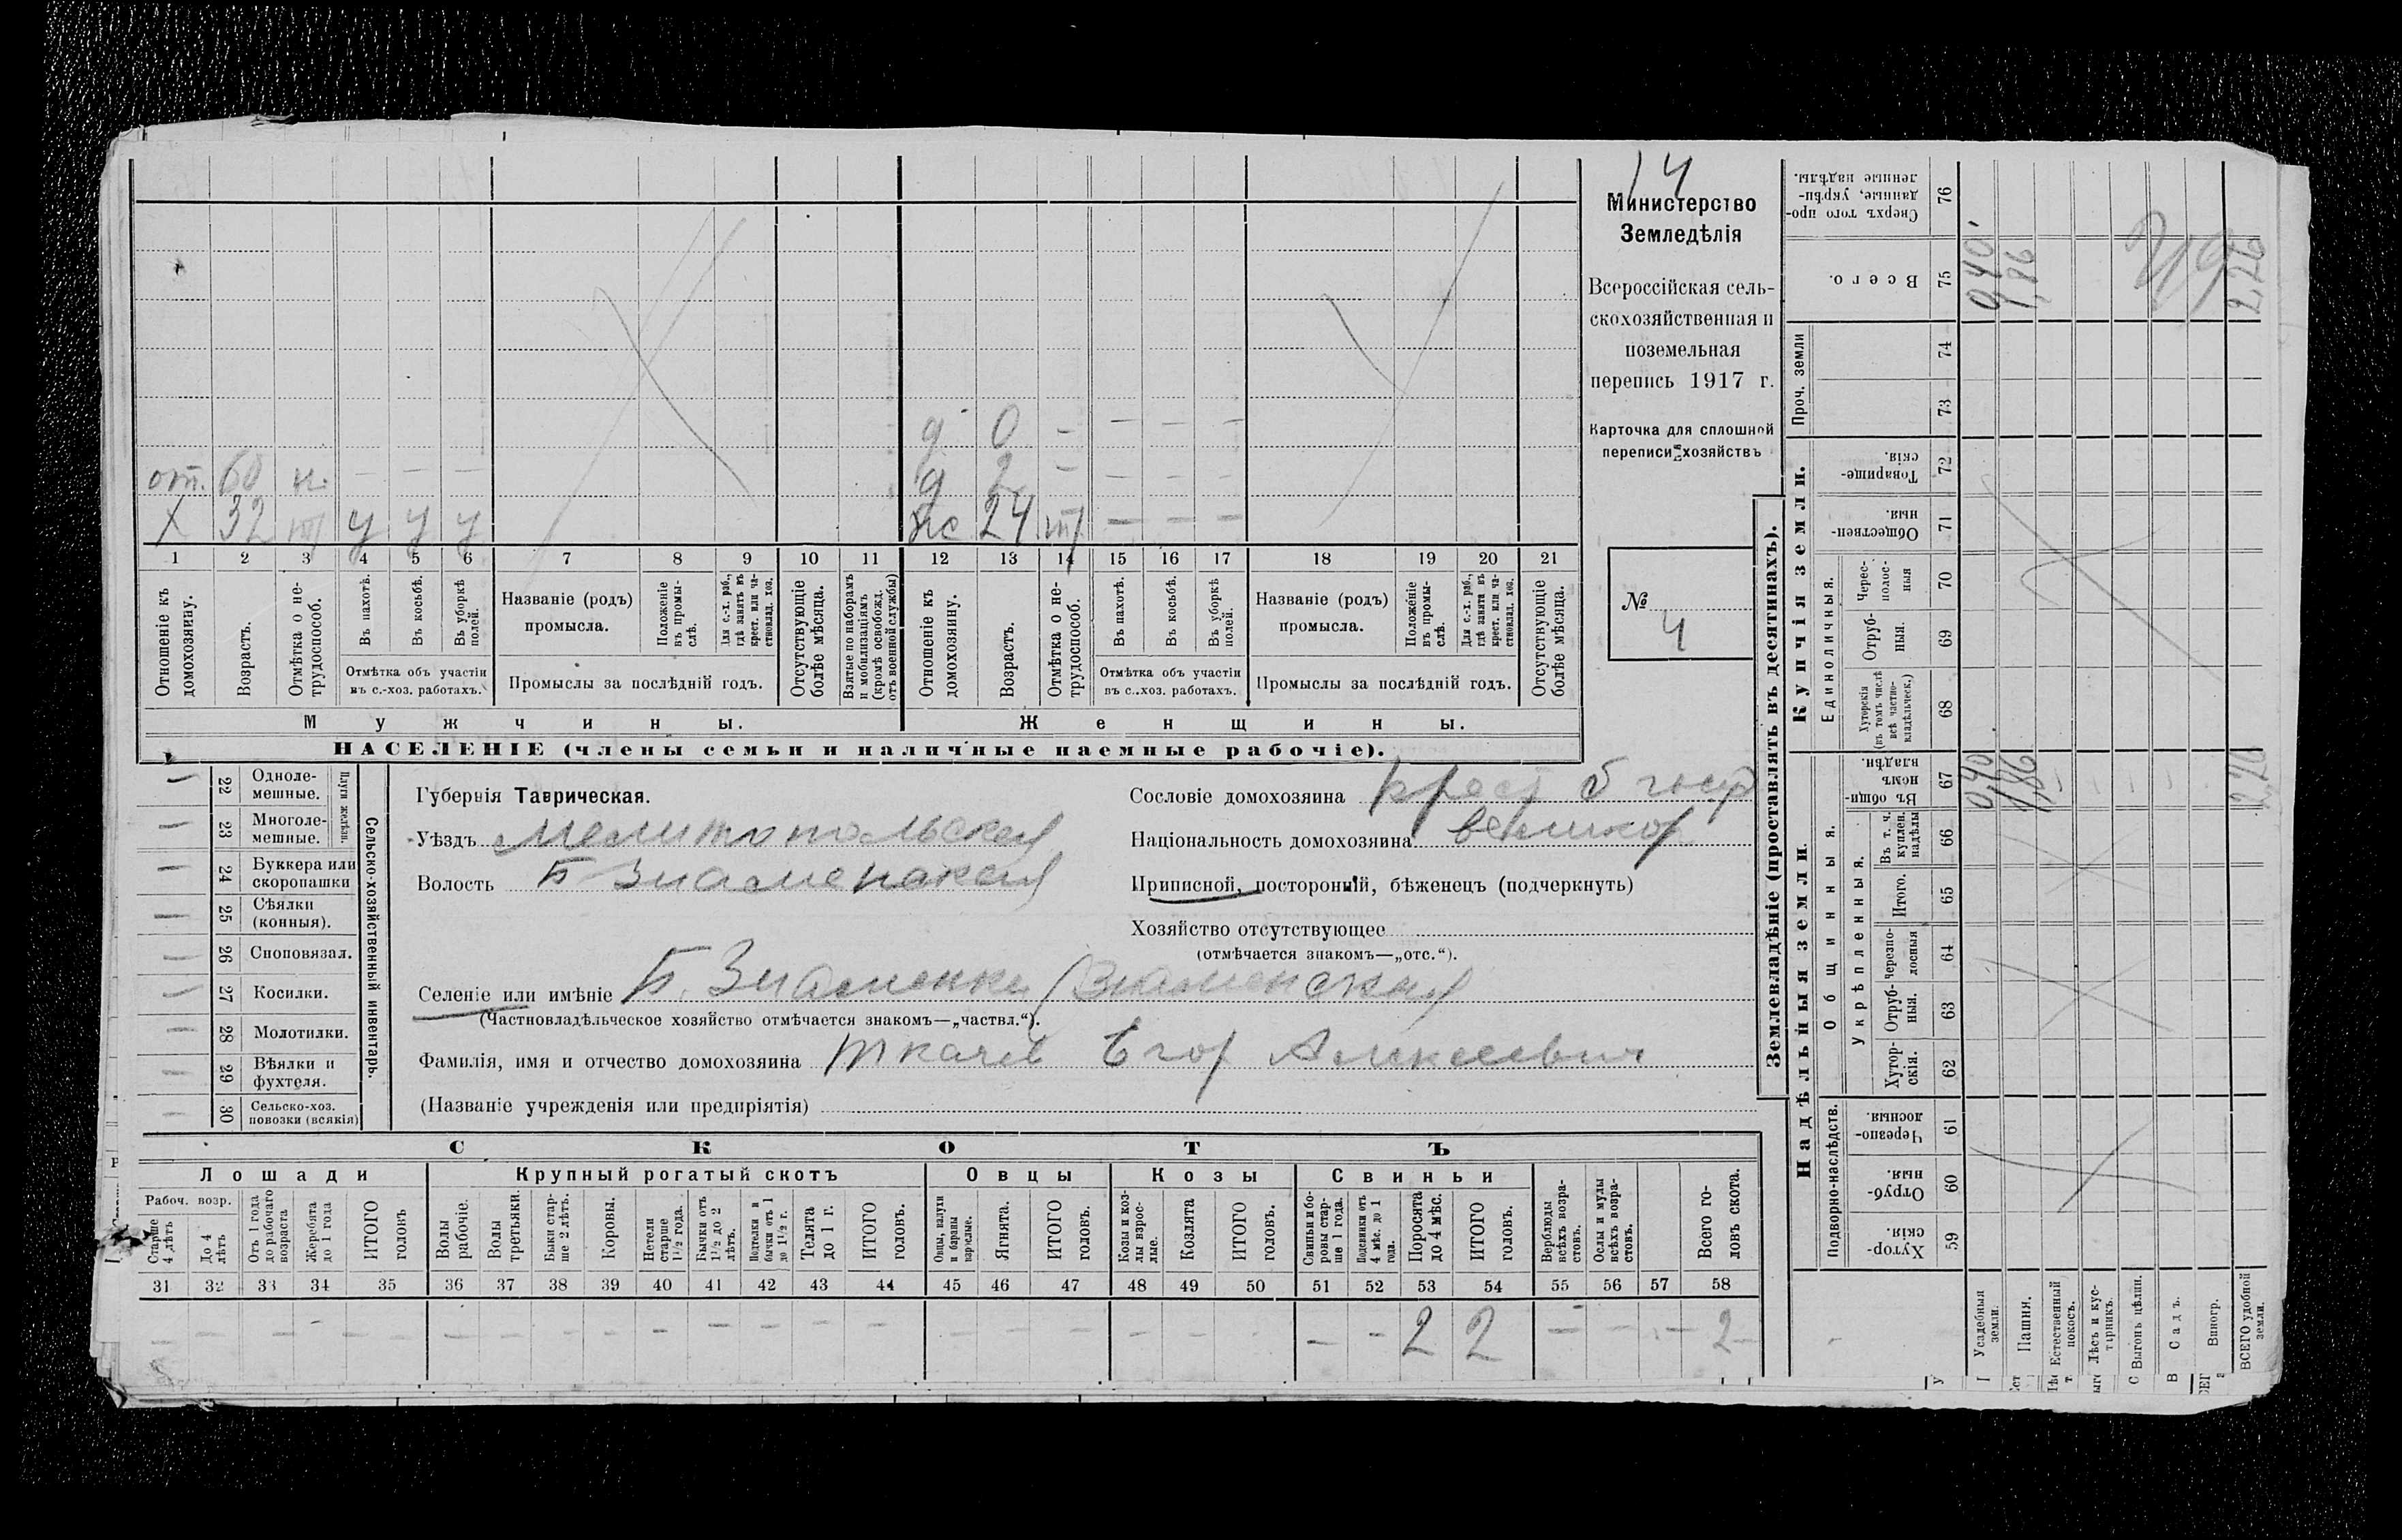 14
Министерство
Земледѣлія
Всероссійская сель-
скохозяйственная и
поземельная
перепись 1917 г.
Карточка для сплошной
переписи хозяйствъ
№
4
д 0 - - - -
от. 60 н. - - - д 2 - - - -
х 32 т у у у же 24 т - - -
1 2 3 4 5 6 7 8 9 10 11 12 13 14 15 16 17 18 19 20 21
Отношеніе къ домохозяину.
Возрастъ.
Отмѣтка о не-трудоспособ.
Въ пахотѣ.
Въ косьбѣ.
Въ уборкѣ полей.
Отмѣтка объ участіи
въ с.-хоз. работахъ.
Названіе (родъ)
промысла.
Положеніе въ промы-слѣ.
Для с.-х. раб., гдѣ занятъ въ крест. или ча-стновлад. хоз.
Промыслы за послѣдній годъ.
Отсутствующіе болѣе мѣсяца.
Взятые по наборамъ и мобилизаціямъ (кромѣ освобожд. отъ военной службы)
Отношеніе къ домохозяину.
Возрастъ.
Отмѣтка о не-трудоспособ.
Въ пахотѣ.
Въ косьбѣ.
Въ уборкѣ полей.
Отмѣтка объ участіи
въ с.-хоз. работахъ.
Названіе (родъ)
промысла.
Положеніе въ промы-слѣ.
Для с.-х. раб., гдѣ занята въ крест. или ча-стновлад. хоз.
Промыслы за послѣдній годъ.
Отсутствующіе болѣе мѣсяца.
Мужчины.
Женщины.
НАСЕЛЕНІЕ (члены семьи и наличные наемные рабочіе).
Сельско-хозяйственный инвентарь.
Плуги желѣзн.
— 22 Одноле-мешные.
— 23 Многоле-мешные.
— 24 Буккера или скоропашки
— 25 Сѣялки (конныя).
— 26 Сноповязал.
— 27 Косилки.
— 28 Молотилки.
— 29 Вѣялки и фухтеля.
— 30 Сельско-хоз. повозки (всякія)
Губернія Таврическая.
Уѣздъ Мелитопольскій
Волость Б Знаменская
Сословіе домохозяина крест б госр
Національность домохозяина великор
Приписной, посторонній, бѣженецъ (подчеркнуть)
Хозяйство отсутствующее
(отмѣчается знакомъ—„отс.“).
Селеніе или имѣніе Б. Знаменка (Знаменская)
(Частновладѣльческое хозяйство отмѣчается знакомъ—„частвл.“).
Фамилія, имя и отчество домохозяина Ткачев Егор Алексеевич
(Названіе учрежденія или предпріятія)
СКОТЪ
Лошади
Крупный рогатый скотъ
Овцы
Козы
Свиньи
Рабоч. возр.
Старше 4 лѣтъ
До 4 лѣтъ
Отъ 1 года до рабочаго возраста
Жеребята до 1 года
ИТОГО головъ
Волы рабочіе.
Волы третьяки.
Быки стар-ше 2 лѣтъ.
Коровы.
Нетели старше 1½ года.
Бычки отъ 1½ до 2 лѣтъ.
Подтелки и бычки отъ 1 до 1½ г.
Телята до 1 г.
ИТОГО головъ.
Овцы, валухи и бараны взрослые.
Ягнята.
ИТОГО головъ.
Козы и коз-лы взрос-лые.
Козлята
ИТОГО головъ.
Свиньи и бо-ровы стар-ше 1 года.
Подсвинки отъ 4 мѣс. до 1 года.
Поросята до 4 мѣс.
ИТОГО головъ.
Верблюды всѣхъ возра-стовъ.
Ослы и мулы всѣхъ возра-стовъ.
Всего го-ловъ скота.
31 32 33 34 35 36 37 38 39 40 41 42 43 44 45 46 47 48 49 50 51 52 53 54 55 56 57 58
— — — — — — — — — — — — — — — — — — — — — — 2 2 — — — 2
Землевладѣніе (проставлять въ десятинахъ).
Надѣльныя земли.
Купчія земли.
Проч. земли
Подворно-наслѣдств.
Общинныя.
Укрѣпленныя.
Единоличныя.
Хутор-скія. 59
Отруб-ныя. 60
Черезпо-лосныя 61
Хутор-скія. 62
Отруб-ныя. 63
Черезпо-лосныя 64
Итого. 65
Въ т. ч. куплен. надѣлы 66
Въ общи-номъ владѣн. 67
Хуторскія (въ томъ числѣ всѣ частно-владѣльческ.) 68
Отруб-ныя. 69
Черес-полос-ныя 70
Обществен-ныя. 71
Товарище-скія. 72
73
74
Всего. 75
Сверхъ того про-данные, укрѣп-ленные надѣлы. 76
Усадебныя земли. 0,40 0,40
Пашня. 1,86 1,86
Естественный покосъ. —
Лѣсъ и кус-тарникъ.
Выгонъ цѣлин.
Садъ.
Виногр.
ВСЕГО удобной земли. 2,26 2,26